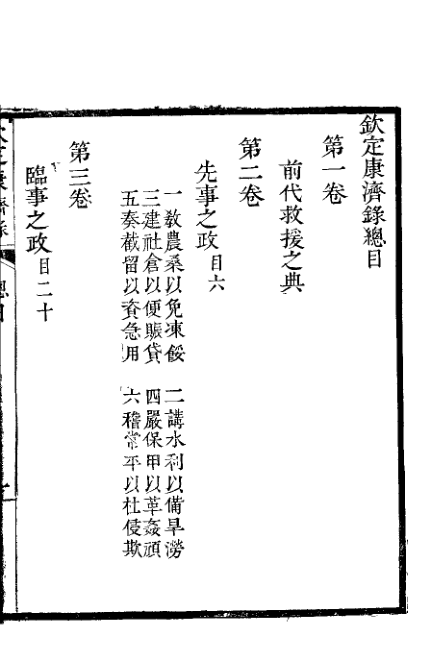 欽定康濟錄總目
第一卷
前代救援之典
第二卷
先事之政目六
一教農桑以免凍餒 二講水利以備旱澇
三建社倉以便賑貸 四嚴保甲以革姦頑
五奏截留以資急用 六稽常平以杜侵欺
第三卷
臨事之政目二十